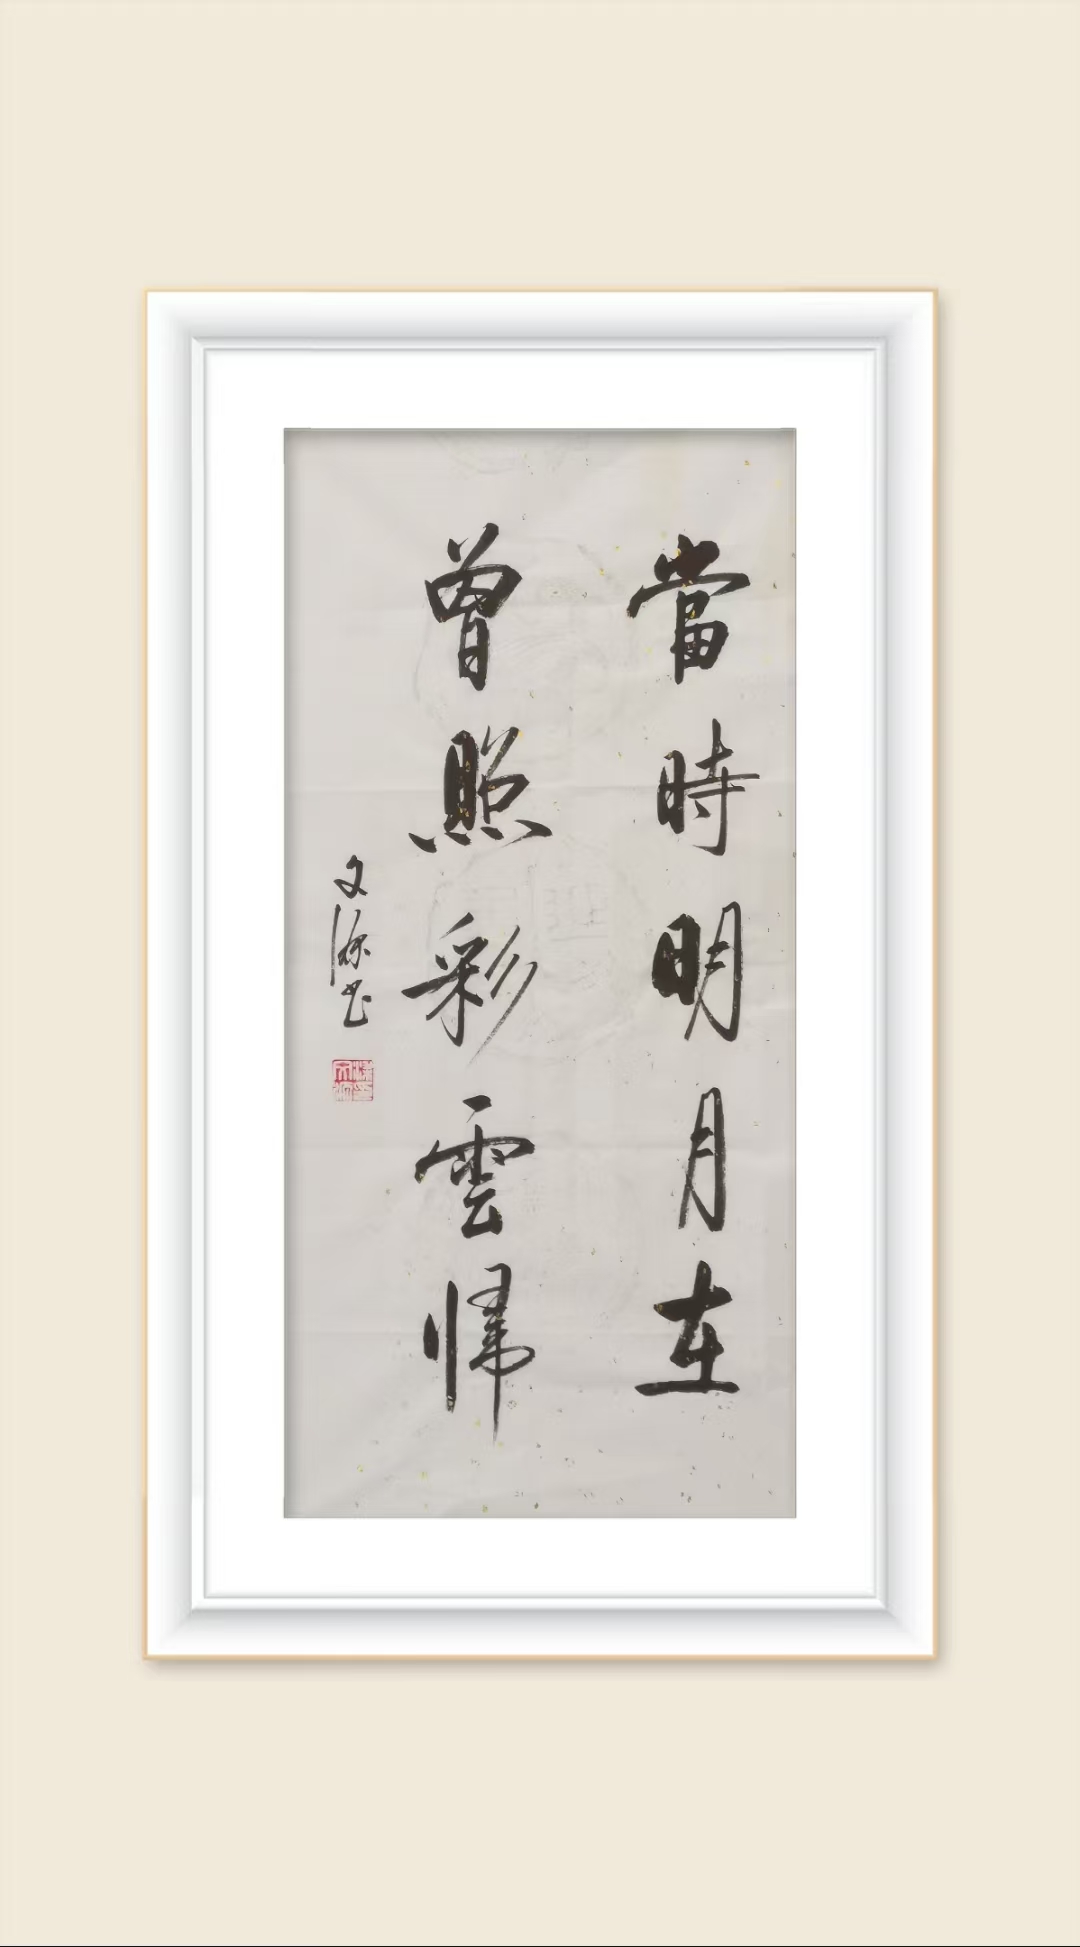 當時明月在
曾照彩雲歸
文源书